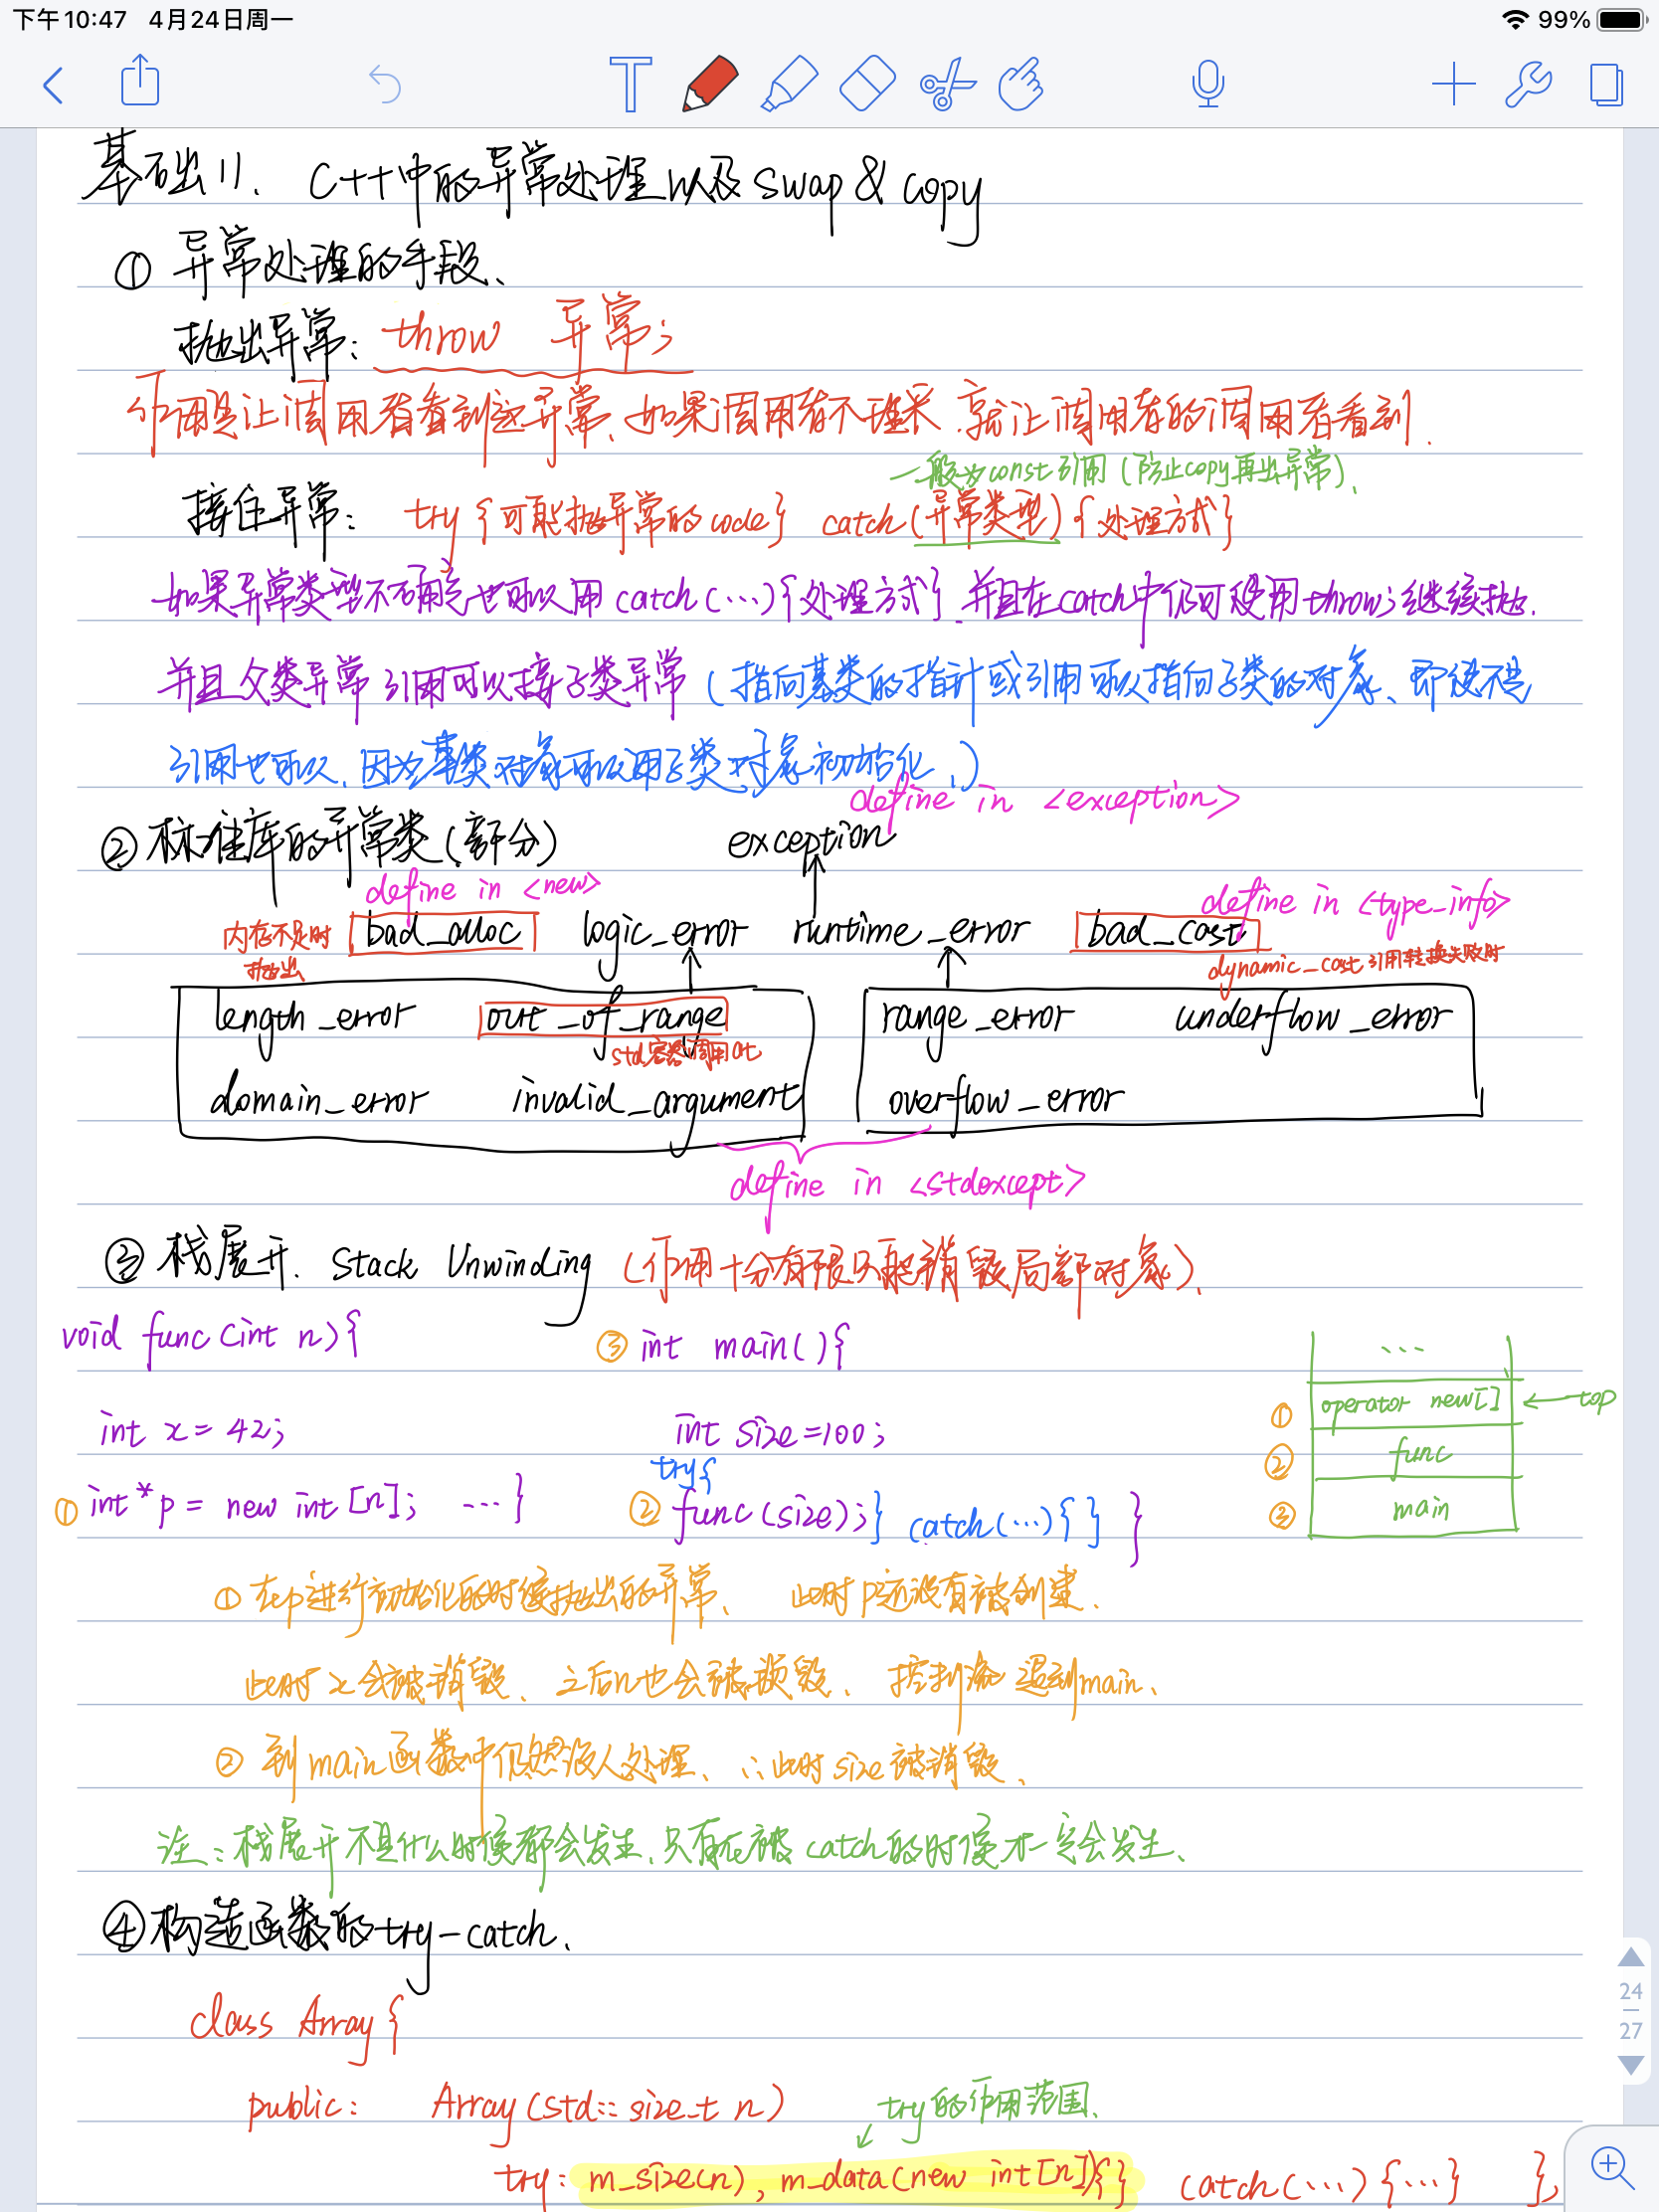 下午10:47 4月24日周一 99%
基础11. C++中的异常处理以及swap&copy
① 异常处理的手段、
抛出异常: throw 异常;
作用是让调用者看到这异常、如果调用者不理采.就让调用者的调用者看到.
一般为const引用(防止copy再出异常)、
接住异常: try{可能抛异常的code} catch(异常类型){处理方式}
如果异常类型不确定也可以用catch(...){处理方式}.并且在catch中仍可使用throw;继续抛.
并且父类异常引用可以接子类异常(指向基类的指针或引用可以指向子类的对象、即使不是
引用也可以.因为基类对象可以用子类对象初始化.)
define in <exception>
② 标准库的异常类(部分) exception
define in <new> define in <type_info>
内存不足时 bad_alloc logic_error runtime_error bad_cast
抛出 dynamic_cast引用转换失败时
length_error out_of_range range_error underflow_error
std容器调用at
domain_error invalid_argument overflow_error
define in <stdexcept>
③ 栈展开. Stack Unwinding (作用十分有限只能销毁局部对象)、
void func(int n){ ③ int main(){ ...
int x = 42; int size=100; ① operator new[] ← top
try{ ② func
① int*p = new int[n]; ...} ② func(size);} catch(...){ } } ③ main
① 在p进行初始化的时候抛出的异常、 此时p还没有被创建.
此时x会被销毁、之后n也会被损毁、控制流退到main、
② 到main函数中仍然没人处理、∴此时size被销毁、
注:栈展开不是什么时候都会发生.只有在被catch的时候才一定会发生、
④ 构造函数的try-catch.
class Array{
public: Array(std::size_t n) try的作用范围.
try: m_size(n), m_data(new int[n]){} catch(...){...} };
24
27